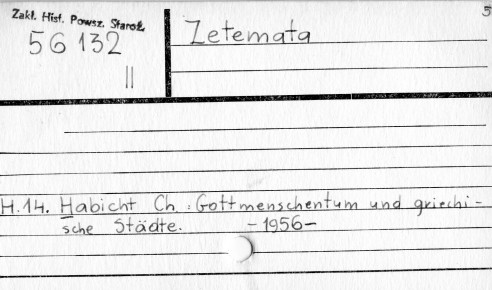 Zakł. Hist. Powsz. Staroż.
56132
||
Zetemata
5
H.14. Habicht Ch : Gottmenschentum und griechi-
sche Städte. -1956-